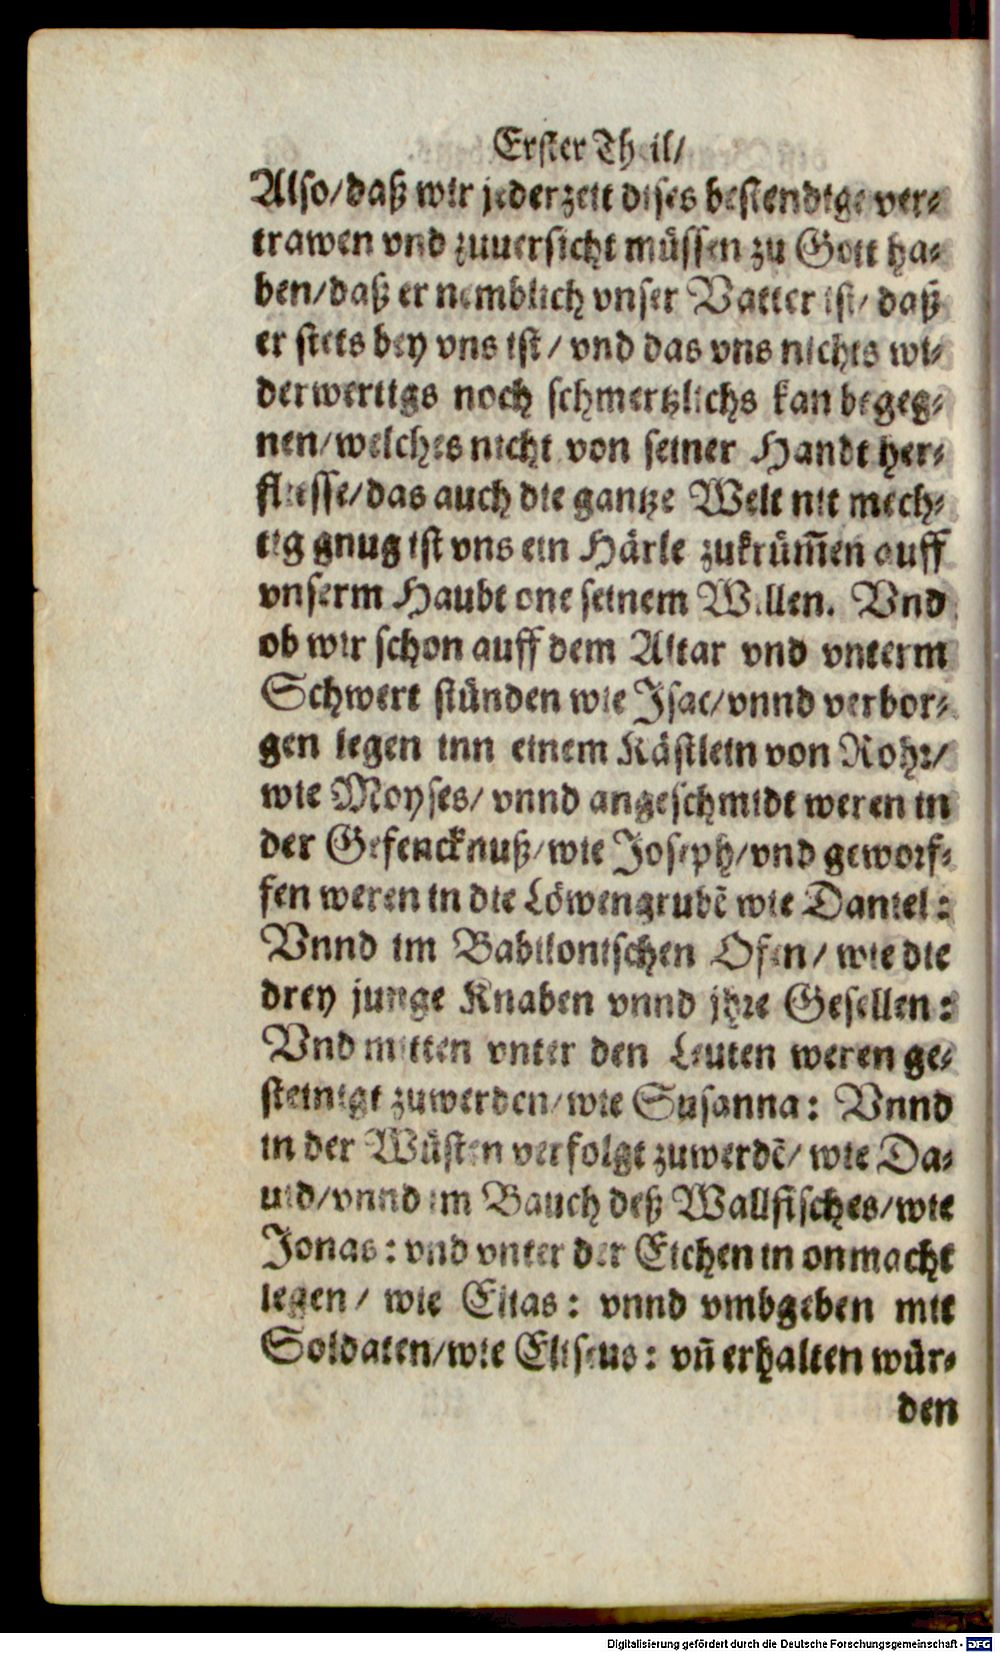 Erster Theil/
Also/daß wir jederzeit dises bestendige ver-
trawen vnd zuuersicht müssen zu Gott ha-
ben/daß er nemblich vnser Vatter ist/ daß
er stets bey vns ist/ vnd das vns nichts wi-
derwertigs noch schmertzlichs kan begeg-
nen/welches nicht von seiner Handt her-
fliesse/das auch die gantze Welt nit mech-
tig gnug ist vns ein Härle zukrüm̃en auff
vnserm Haubt one seinem Willen. Vnd
ob wir schon auff dem Altar vnd vnterm
Schwert stünden wie Isac/vnnd verbor-
gen legen inn einem Kästlein von Rohr/
wie Moyses/ vnnd angeschmidt weren in
der Gefencknuß/wie Joseph/vnd geworf-
fen weren in die Löwengrubẽ wie Daniel:
Vnnd im Babilonischen Ofen/ wie die
drey junge Knaben vnnd jhre Gesellen:
Vnd mitten vnter den Leuten weren ge-
steinigt zuwerden/wie Susanna: Vnnd
in der Wüsten verfolgt zuwerdẽ/ wie Da-
uid/vnnd im Bauch deß Wallfisches/wie
Jonas: vnd vnter der Eichen in onmacht
legen/ wie Elias: vnnd vmbgeben mit
Soldaten/wie Eliseus: vñ erhalten wür-
den
Digitalisierung gefördert durch die Deutsche Forschungsgemeinschaft - DFG